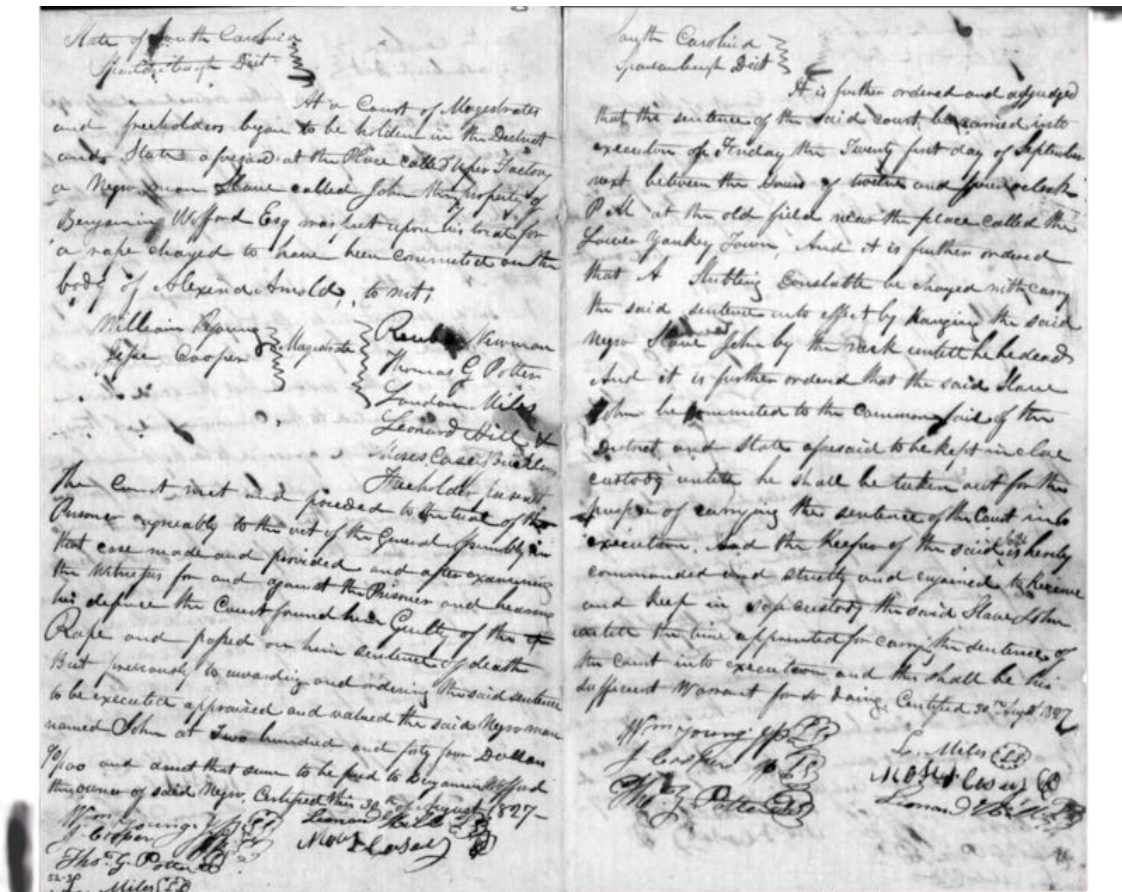 State of South Carolina
Spartanburgh Dist
At a Court of Magestrates
and freeholders begun to be holden in the District
and State aforesaid at the Place called Uper Factory
a Negro man Slave called John the property of
Benjamin Wofford Esq was set upon his for
a rape charged to have been commited on the
body of Arnold, to wit,
William Young
Jesse Cooper
Magistrate
Newman
Thomas G Potter
Landon Miles
Leonard Hill &
Moses Casey
Freeholder present
The Court met and proceded to the trial of the
Prisoner agreeably to the act of the General Assembly in
that case made and provided and after examining
the Witneses for and against the Prisoner and hearing
his defence the Court found him Guilty of the
Rape and passed on him sentence of death
But previously to awarding and ordering the said sentence
to be executed appraised and valued the said Negro man
named John at Two hundred and forty four Dollars
/100 and that sum to be paid to Benjamin Wofford
the owner of said Negro. Certified this 30th of August 1827-
Wm Young
J Cooper
Thos. G. Potter
Miles
Leonard Hill
Moses Casey
South Carolina
Spartanburgh Dist
It is further ordered and adjudged
that the sentence of the said court be carried into
execution on Friday the Twenty first day of September
next between the hours of twelve and four oclock
P.M at the old field near the place called the
Lower Yankey Town, And it is further ordered
that A Constable be charged with carry
the said sentence into effect by hanging the said
Negro Slave John by the neck untill he be dead
And it is further ordered that the said Slave
John be commited to the Common Jail of the
District and State aforesaid to be kept in close
custody untill he shall be taken out for the
purpose of carrying the sentence of the Court into
execution. And the Keeper of the said Jail is hereby
commanded and strictly and enjoined to Receive
and Keep in safe custody the said Slave John
untill the time appointed for carry the sentence of
the Court into execution and this shall be his
sufficient Warrant for so doing. Certified 30th Augst 1827
Wm Young
J Cooper
Tho. G Potter
L. Miles
Moses Casey
Leonard Hill